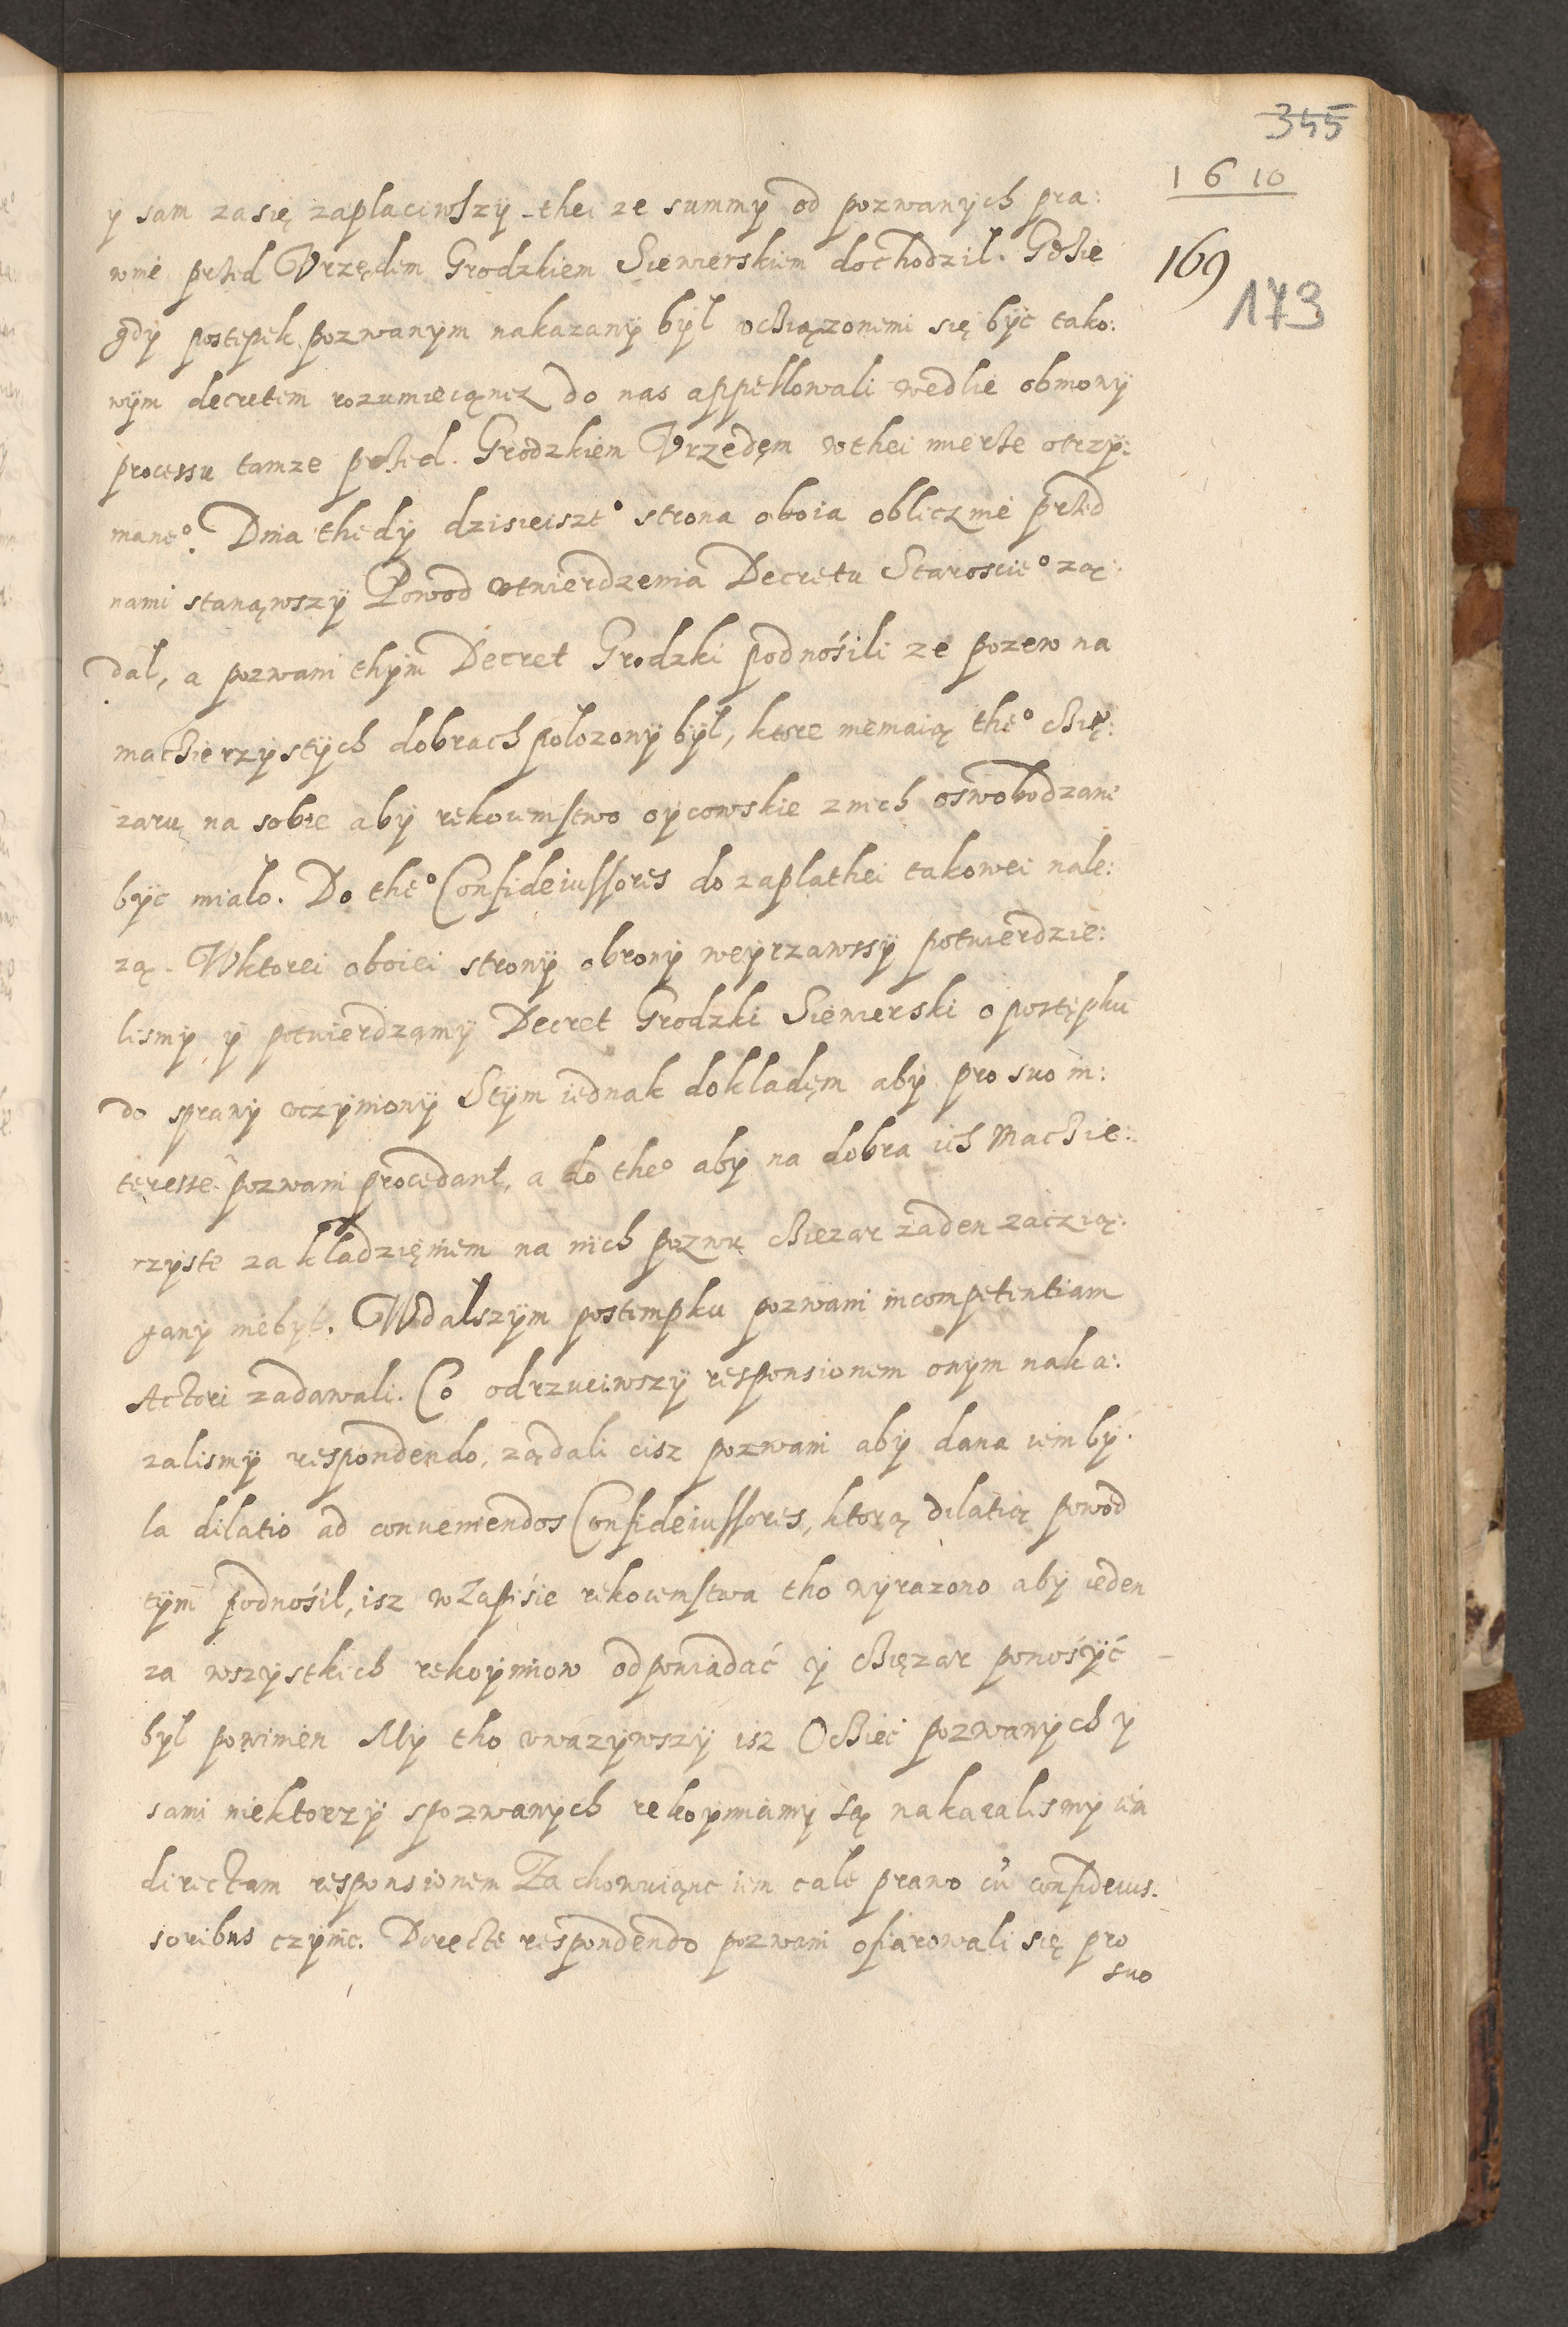 345
1610
169
173
y sam zasię zaplaciwszy thei ze summy od pozwanych pra:
wnie przed Vrzędem Grodzkiem Siewierskiem dochodzil. Gdzie
gdy postepek pozwanym nakazany byl ociążonemi się byc tako:
wym decretem rozumieiąncz do nas appellowali wedlie obmowy
processu tamze przed Grodzkiem Vrzedęm w thei mierze otrzy:
maneo. Dnia thedy dzisieiszeo strona oboia obliczmie przed
nami stanąwszy Powod vtwierdzenia Decretu Staroscieo zą:
dal, a pozwani thym Decret Grodzki podnośili ze pozew na
macierzystych dobrach polozony byl, ktore niemaią theo cię:
zaru na sobie aby rekoiemstwo oycowskie z nich oswobodzane
byc mialo. Do theo Confideiussores do zaplathei takowei nale:
zą. W ktorei oboiei strony obrony weyrzawssy potwierdzie:
lismy y potwierdzamy Decret Grodzki Siewierski o postępku
do sprawy vczyniony Stym iednak dokladęm aby pro suo in:
teresse pozwani procedant, a do theo aby na dobra ich Macie:
rzyste za kladzięniem na nich pozwu ciezar zaden zaczią:
gany niebyl. W dalszym postempku pozwani incompetentiam
Actori zadawali. Co odrzuciwszy responsionem onym naka:
zalismy respondendo, ządali cisz pozwani aby dana iem by:
la dilatio ad conueniendos Confideiussores, ktorą dilatią powod
tym podnośil, isz w Zapiśie rekoiemstwa tho wyrazono aby ieden
za wszystkich rekoymiow odpowiadać y ciężar ponośyć
byl powinien My tho vwazywszy isz Ociec pozwanych y
sami niektorzy s pozwanych rekoymiamy są nakazalismy iem
directam responsionem Zachowuiąnc iem cale prawo cu confideius:
soribus czynic. Directe respondendo pozwani ofiarowali się pro
suo